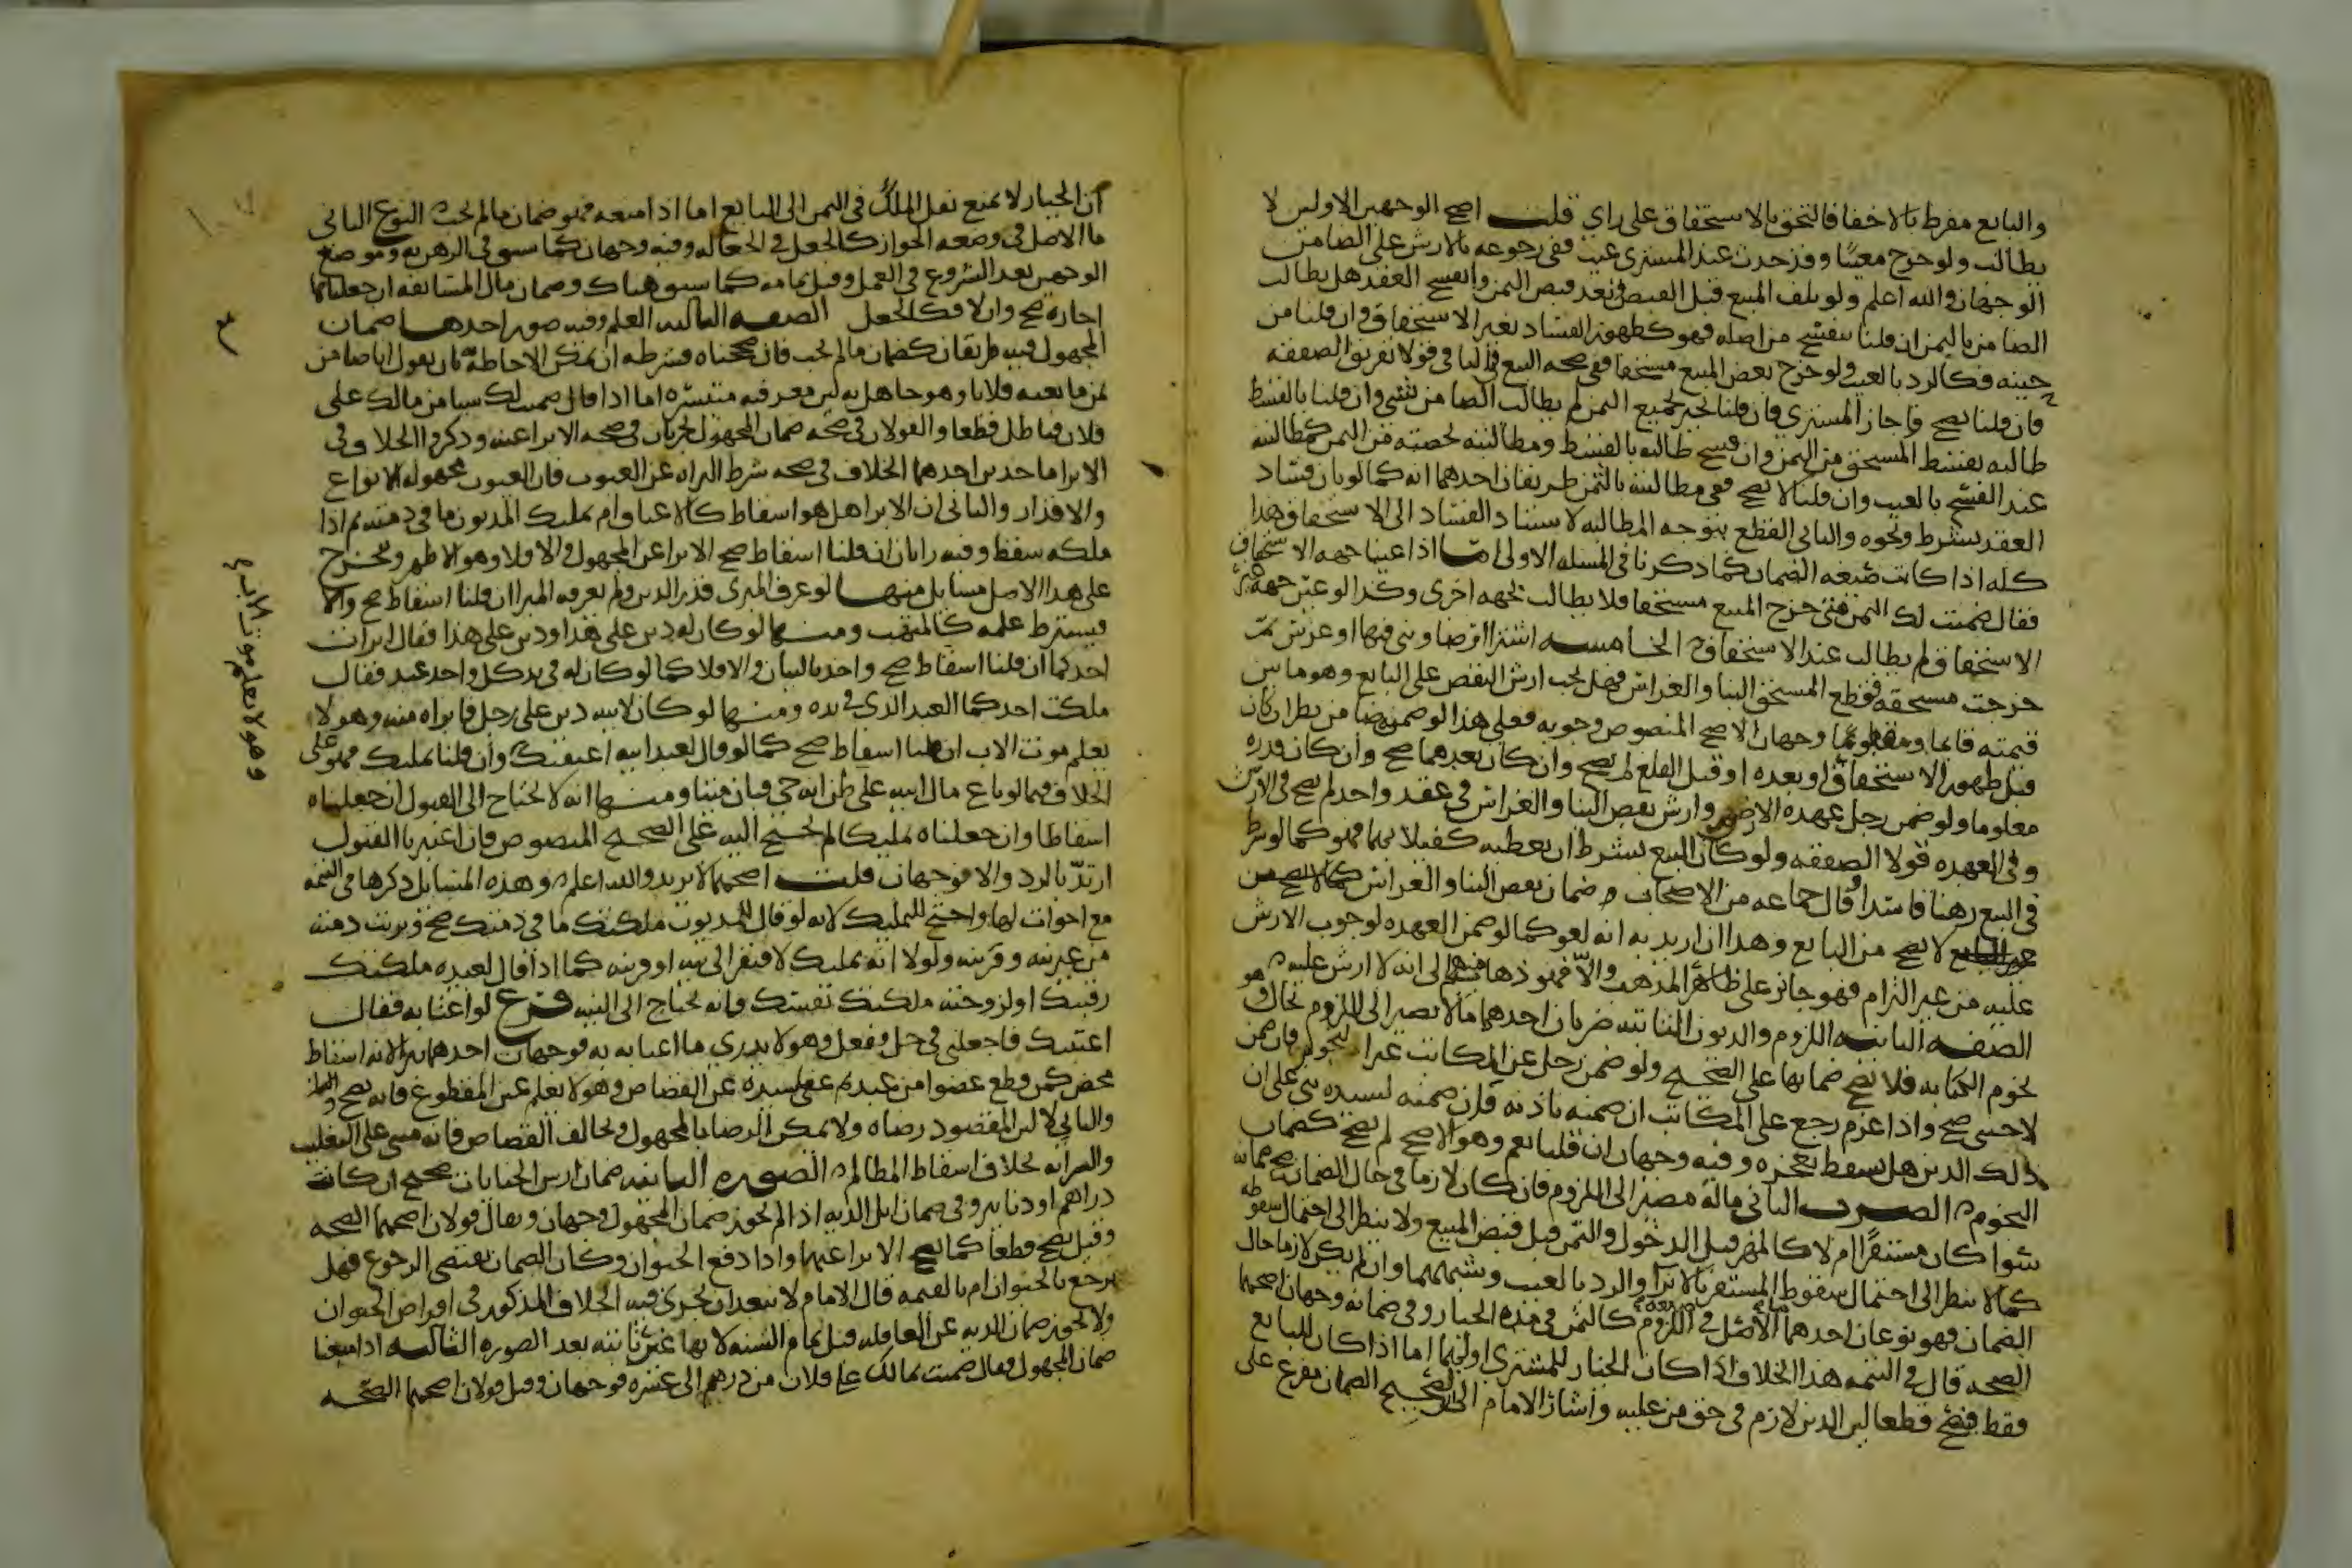 والبايع مفرط بالاخفا فالتحق بالاستحقاق على راي قلت اصح الوجهين الاولين لا
يطالب ولو خرج معيبا وقد حدث عند المشترى عيب ففى رجوعه بالارش على الضامن
الوجهان والله اعلم ولو تلف المبيع قبل القبض بعد قبض الثمن وانفسخ العقد هل يطالب
الضامن بالثمن ان قلنا ينفسخ من اصله فهو كظهور الفساد بغير الاستحقاق وان قلنا من
حينه فكالرد بالعيب ولو خرج بعض المبيع مستحقا ففى صحه البيع فى الباقى قولا تفريق الصفقه
فان قلنا يصح واجاز المشترى فان قلنا يجيز بجميع الثمن لم يطالب الضامن بشى وان قلنا بالقسط
طالبه بقسط المستحق من الثمن وان فسخ طالبه بالقسط ومطالبته بحصته من الثمن كمطالبته
عند الفسخ بالعيب وان قلنا لا يصح ففى مطالبته بالثمن طريقان احدهما انه كما لو بان فساد
العقد بشرط ونحوه والثانى القطع بتوجه المطالبه لاستناد الفساد الى الاستحقاق هذا
كله اذا كانت صيغه الضمان كما ذكرنا فى المسله الاولى اما اذا عينا جهه الاستحقاق
فقال ضمنت لك الثمن متى خرج المبيع مستحقا فلا يطالب بجهه اخرى وكذا لو عين جهه غير
الاستحقاق لم يطالب عند الاستحقاق الخامسه اشترا ارضا وبنى فيها او غرس ثم
خرجت مستحقه فقطع المستحق البنا والغراس فهل يجب ارش النقص على البايع وهو ما بين
قيمته قايما ومقلوعا وجهان الاصح المنصوص وجوبه فعلى هذا لو ضمنه ضامن نظر ان كان
قبل ظهور الاستحقاق او بعده او قبل القلع لم يصح وان كان بعدهما صح وان كان قدره
معلوما ولو ضمن رجل عهده الارض وارش نقص البنا والغراس فى عقد واحد لم يصح فى الارش
وفى العهده قولا الصفقه ولو كان البيع بشرط ان يعطيه كفيلا بهما فهو كما لو شرط
فى البيع رهنا فاسدا وقال جماعه من الاصحاب ضمان نقص البنا والغراس كما لا يصح من
غير البايع لا يصح من البايع وهذا ان اريد به انه لغو كما لو ضمن العهده لوجوب الارش
عليه من غير التزام فهو جار على ظاهر المذهب والا فهو ذهاب منهم الى انه لا ارش عليه
الصفه الثانيه اللزوم والديون الثابته ضربان احدهما ما لا يصير الى اللزوم بحال وهو
نجوم الكتابه فلا يصح ضمانها على الصحيح ولو ضمن رجل عن المكاتب غير النجوم فان ضمن
لاجنبى صح واذا غرم رجع على المكاتب ان ضمنه باذنه فان ضمنه لسيده بنى على ان
ذلك الدين هل يسقط بعجزه وفيه وجهان ان قلنا نعم وهو الاصح لم يصح كضمان
النجوم الضرب الثانى ماله مصير الى اللزوم فان كان لازما فى حال الضمان صح ضمانه
سوا كان مستقرا ام لا كالمهر قبل الدخول والثمن قبل قبض المبيع ولا ينظر الى احتمال سقوطه
كما لا ينظر الى احتمال سقوط المستقر بالابرا والرد بالعيب وشبههما وان لم يكن لازما حال
الضمان فهو نوعان احدهما الاصل فى اللزوم كالثمن فى مده الخيار وفى ضمانه وجهان اصحهما
الصحه قال فى التتمه هذا الخلاف اذا كان الخيار للمشترى او لهما اما اذا كان للبايع
فقط فيصح قطعا لان الدين لازم فى حق من عليه واشار الامام الى تصحيح الضمان مفرع على
ان الخيار لا يمنع نقل الملك فى الثمن الى البايع اما اذا منعه فهو ضمان ما لم يجب النوع الثانى
ما الاصل فى وضعه الجواز كالجعل فى الجعاله وفيه وجهان كما سبق فى الرهن به وموضع
الوجهين بعد الشروع فى العمل وقبل تمامه كما سبق هناك وضمان مال المسابقه ان جعلناها
اجاره صح والا فكالجعل الصفه الثالثه العلم وفيه صور احدها ضمان
المجهول فيه طريقان كضمان ما لم يجب فان صححناه فشرطه ان تمكن الاحاطه به بان يقول انا ضامن
ثمن ما بعته فلانا وهو جاهل به لان معرفته متيسره اما اذا قال ضمنت لك شيا من مالك على
فلان فباطل قطعا والقولان فى صحه ضمان المجهول يجريان فى صحه الابرا عنه وذكروا الخلاف فى
الابرا ماخذين احدهما الخلاف فى صحه شرط البراه عن العيوب فان العيوب مجهوله الانواع
والاقدار والثانى ان الابرا هل هو اسقاط كالاعتاق ام تمليك المديون ما فى ذمته ثم اذا
ملكه سقط وفيه رايان ان قلنا اسقاط صح الابرا عن المجهول والا فلا وهو الاظهر ويتخرج
على هذا الاصل مسايل منها لو عرف المبرى قدر الدين ولم يعرفه المبرا ان قلنا اسقاط صح والا
فيشترط علمه كالمتهب ومنها لو كان له دين على هذا ودين على هذا فقال ابرات
احدكما ان قلنا اسقاط صح واخذ بالبيان والا فلا كما لو كان له فى يد كل واحد عبد فقال
ملكت احدكما العبد الذى فى يده ومنها لو كان لابيه دين على رجل فابراه منه وهو لا
يعلم موت الاب ان قلنا اسقاط صح كما لو قال لعبد ابيه اعتقتك وان قلنا تمليك فهو على
الخلاف فيما لو باع مال ابيه على ظن انه حى فبان ميتا ومنها انه لا يحتاج الى القبول ان جعلناه
اسقاطا وان جعلناه تمليكا لم يحتج اليه على الصحيح المنصوص فان اعتبرنا القبول
ارتد بالرد والا فوجهان قلت اصحهما لا يرتد والله اعلم وهذه المسايل ذكرها فى التتمه
مع اخوات لها واحتج للتمليك لانه لو قال للمديون ملكتك ما فى ذمتك صح وبريت ذمته
من غير نيه وقرينه ولولا انه تمليك لافتقر الى نيه او قرينه كما اذا قال لعبده ملكتك
رقبتك او لزوجته ملكتك نفسك فانه يحتاج الى النيه فرع لو اغتابه فقال
اغتبتك فاجعلنى فى حل ففعل وهو لا يدرى ما اغتابه به فوجهان احدهما يبرا لانه اسقاط
محض كمن قطع عضوا من عبد ثم عفى سيده عن القصاص وهو لا يعلم عين المقطوع فانه يصح
والثانى لا لان المقصود رضاه ولا يمكن الرضا بالمجهول ويخالف القصاص فانه مبنى على التغليب
والسرايه بخلاف اسقاط المظالم الصوره الثانيه ضمان ارش الجنايات صحيح ان كانت
دراهم او دنانير وفى ضمان ابل الديه اذا لم نجوز ضمان المجهول وجهان ويقال قولان اصحهما الصحه
وقيل يصح قطعا كما يصح الابرا عنها واذا دفع الحيوان وكان الضمان يقتضى الرجوع فهل
يرجع بالحيوان ام بالقيمه قال الامام لا يبعد ان يجرى فيه الخلاف المذكور فى اقراض الحيوان
ولا يجوز ضمان الديه عن العاقله قبل تمام السنه لانها غير ثابته بعد الصوره الثالثه اذا منعنا
ضمان المجهول فقال ضمنت مما لك على فلان من درهم الى عشره فوجهان وقيل قولان اصحهما الصحه
وهو لا يعلم موت الاب